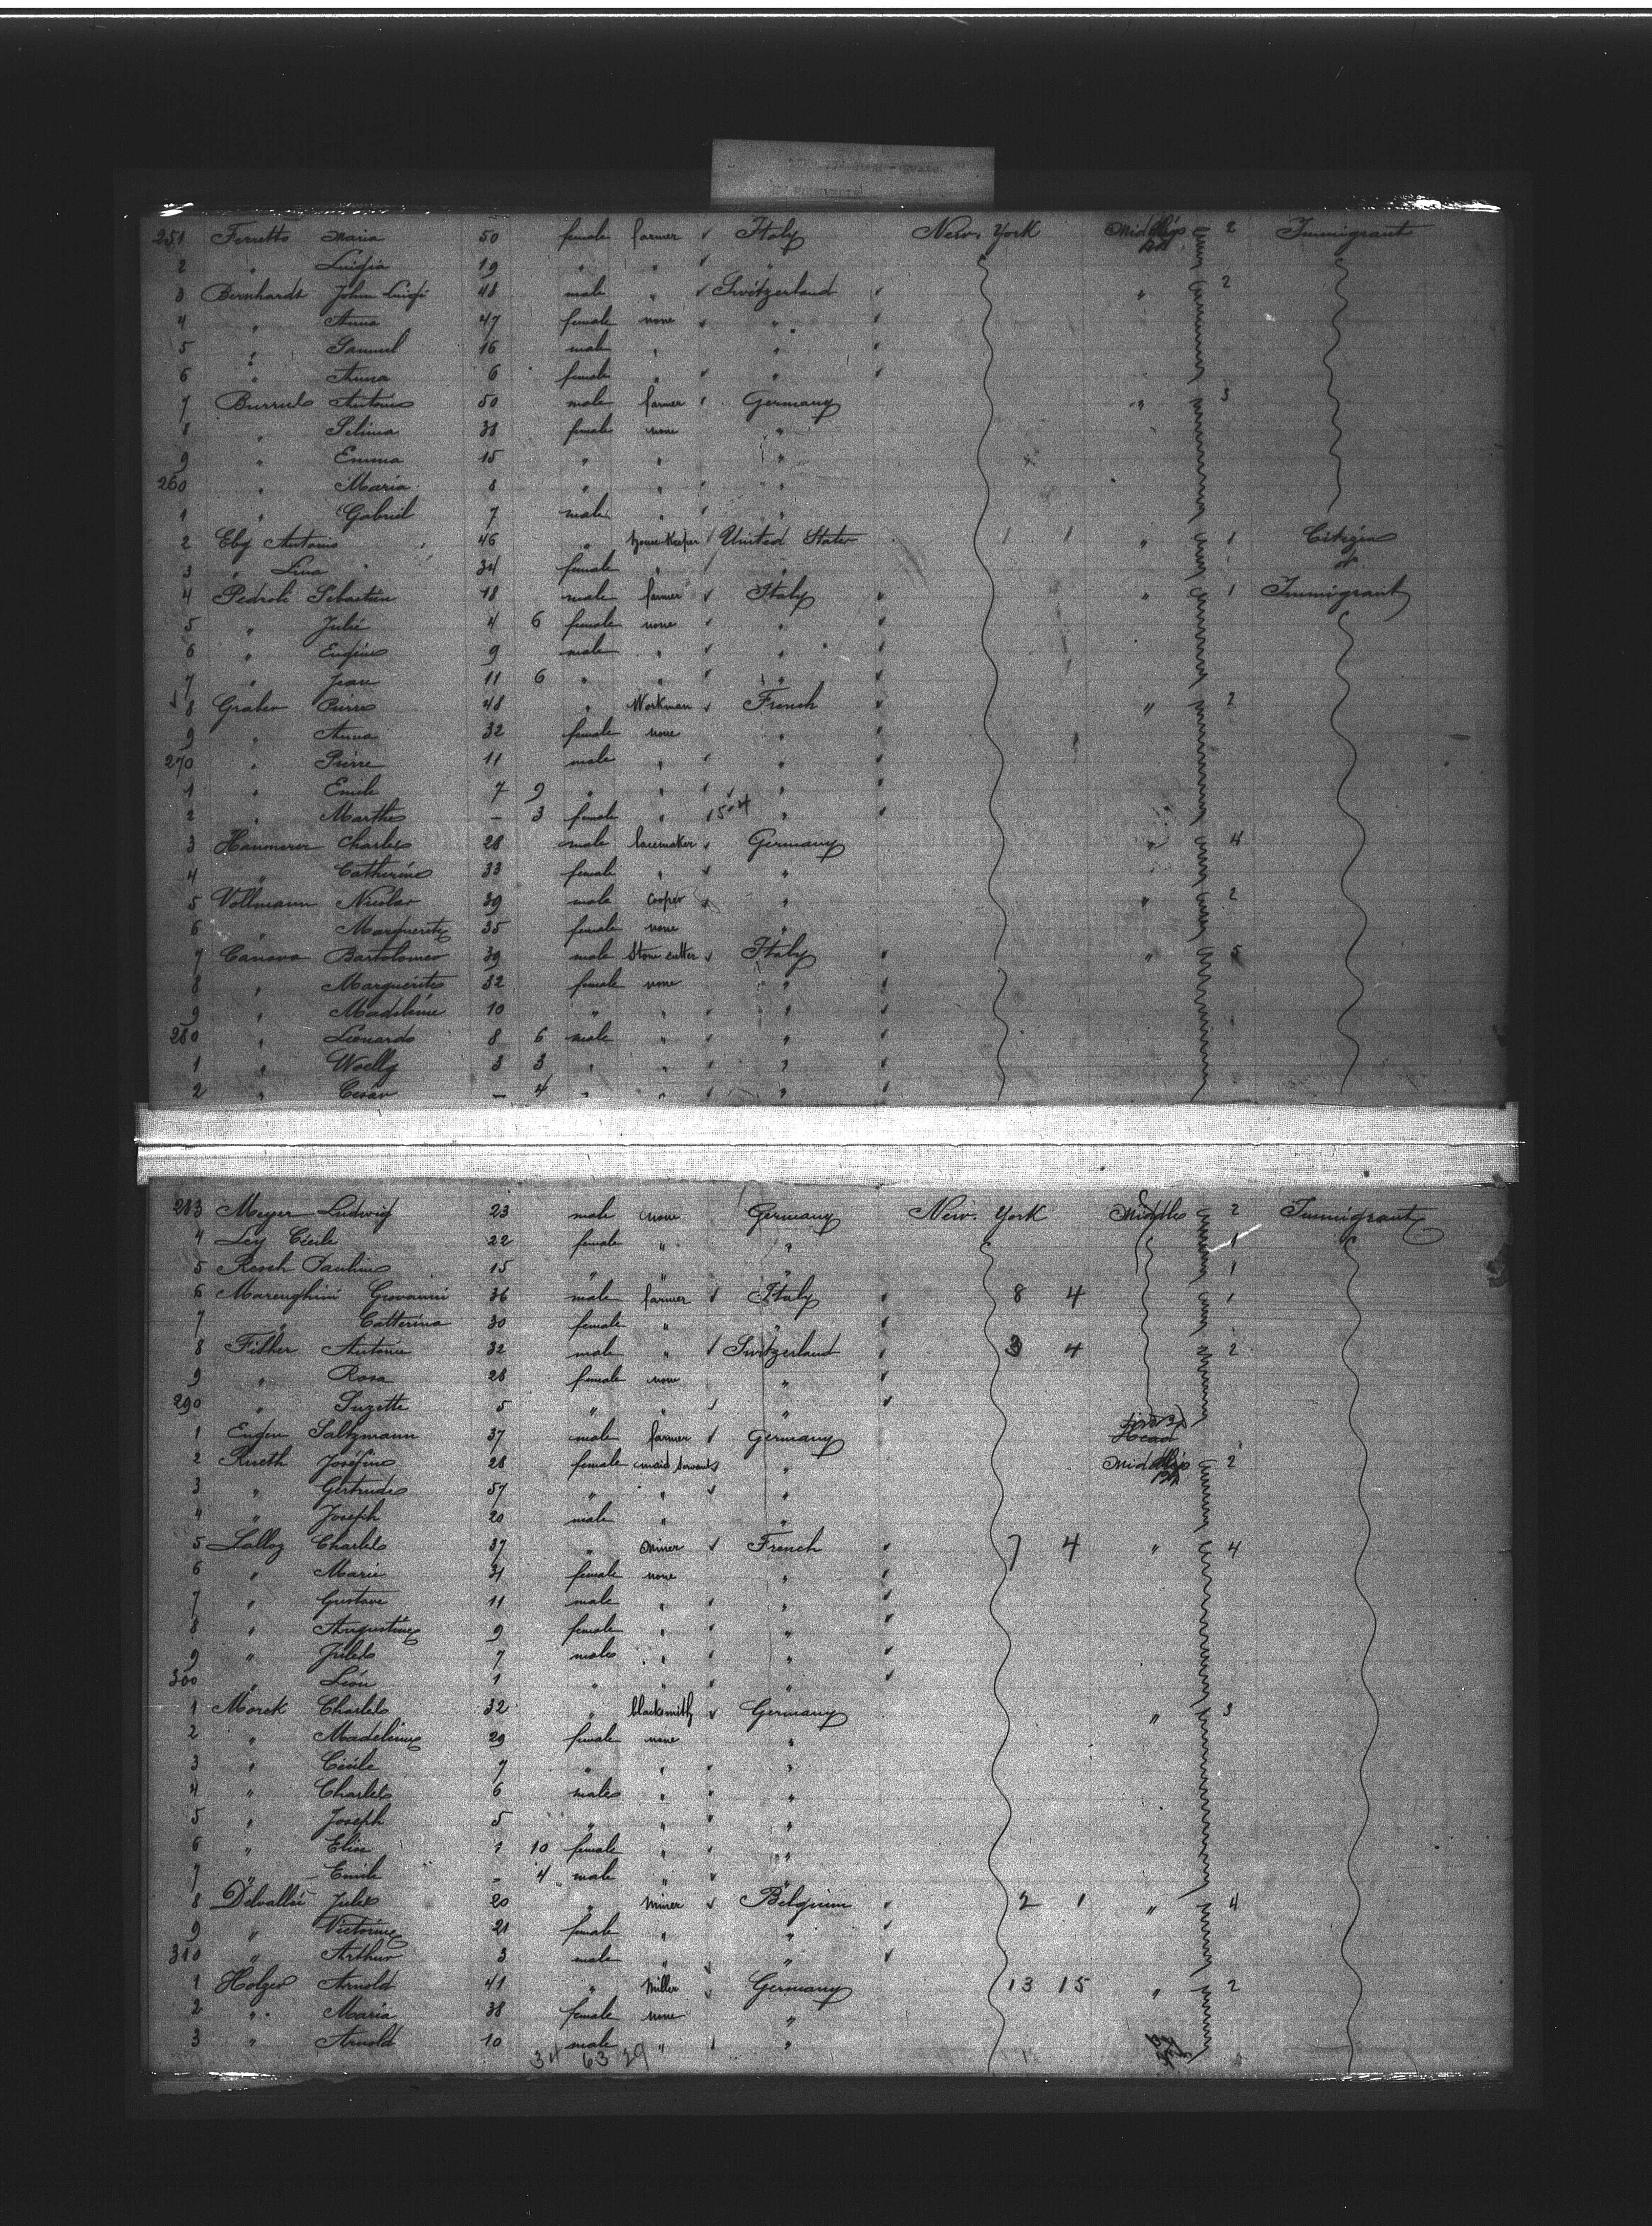 251 Ferretto Maria 50 female farmer Italy New. York Middle 2 Immigrant
2 " Luigia 19 " " "
3 Bernhardt John Luigi 48 male " Switzerland " 2
4 " Anna 47 female none "
5 " Samuel 16 male " "
6 " Anna 6 female " "
7 Antonio 50 male farmer Germany " 3
8 " Selina 38 female none "
9 " Emma 15 " " "
260 " Maria 8 " " "
1 " Gabriel 7 male " "
2 Eby Antonio 46 " House Keeper United States " 1 Citizen
3 " Lina 34 female " "
4 Pedroli Sebastien 18 male farmer Italy " 1 Immigrant
5 " Julie 4 6 female none "
6 " Eugène 9 male " "
7 " Jean 11 6 " " "
8 Graber Pierre 48 " Workman French " 2
9 " Anna 32 female none "
270 " Pierre 11 male " "
1 " Emile 7 9 " " "
2 " Marthe - 3 female " "
3 Hammerer Charles 28 male lacemaker Germany " 4
4 " Catherine 33 female " "
5 Vollmann Nicolas 39 male Cooper " " 2
6 " Marguerite 35 female none "
7 Canova Bartolomeo 39 male Stone cutter Italy " 5
8 " Marguerite 32 female none "
9 " Madeleine 10 " " "
280 " Leonardo 8 6 male " "
1 " Woelly 3 3 " " "
2 " César - 4 " " "
283 Meyer Ludwig 23 male none Germany New. York Middle 2 Immigrant
4 Ley Cécile 22 female " " 1
5 Resch Pauline 15 " " " 1
6 Marenghini Giovanni 36 male farmer Italy 8 4 1
7 " Catterina 30 female " "
8 Antonie 32 male " Switzerland 3 4 2
9 " Rosa 28 female none "
290 " Suzette 5 " " "
1 Eugen Saltzmann 37 male farmer Germany
2 Rueth Joséfine 28 female maid servant " Middle 2
3 " Gertrude 57 " " "
4 " Joseph 20 male " "
5 Lalloz Charles 37 " miner French 7 4 " 4
6 " Marie 31 female none "
7 " Gustave 11 male " "
8 " Augustine 9 female " "
9 " Jules 7 male " "
300 " Léon 1 " " "
1 Morek Charles 32 " blacksmith Germany " 3
2 " Madeleine 29 female none "
3 " Cécile 7 " " "
4 " Charles 6 male " "
5 " Joseph 5 " " "
6 " Elise 1 10 female " "
7 " Emile - 4 male " "
8 Delvallée Jules 20 " miner Belgium 2 1 " 4
9 " Victorine 21 female " "
310 " Arthur 3 male " "
1 Holzer Arnold 41 " Miller Germany 13 15 " 2
2 " Maria 38 female none "
3 " Arnold 10 male " "
34 63 29